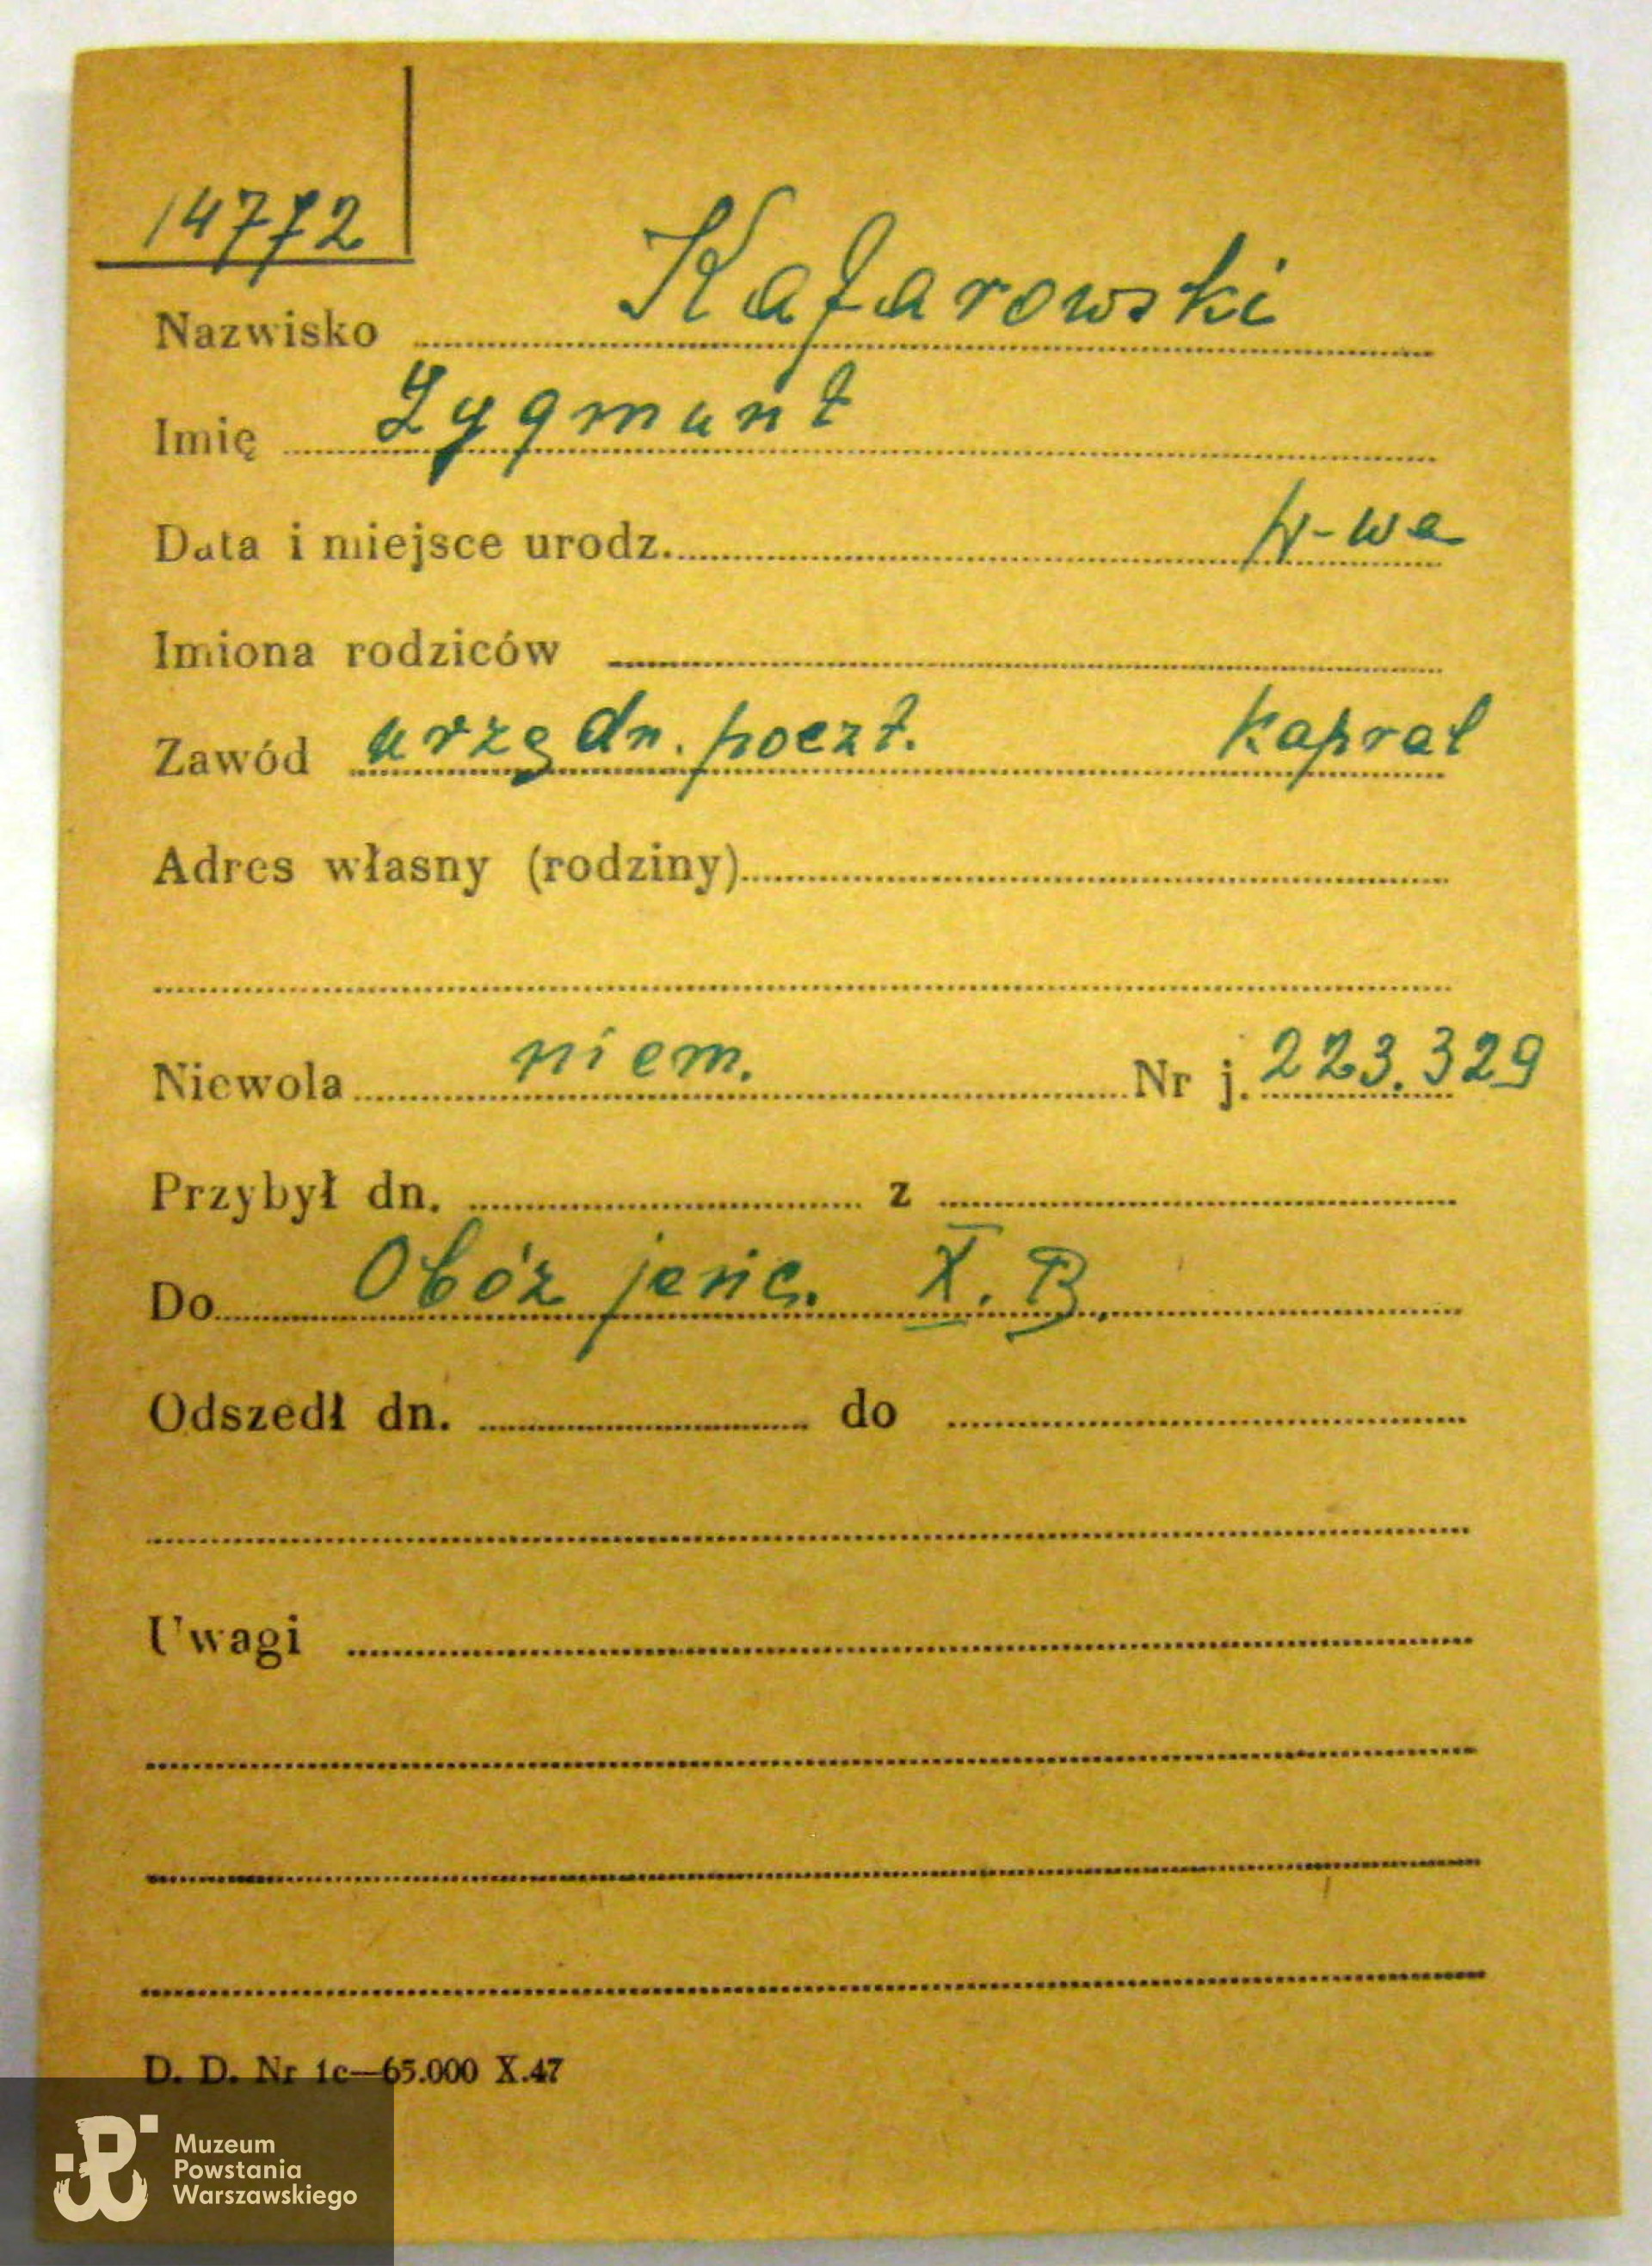 14772
Nazwisko Kafarowski
Imię Zygmunt
Data i miejsce urodz. W-wa
Imiona rodziców
Zawód urzędn. poczt. kapral
Adres własny (rodziny)
Niewola niem. Nr j. 223.329
Przybył dn. z
Do Obóz jeńc. X. B.
Odszedł dn. do
Uwagi
D. D. Nr 1c—65.000 X.47
Muzeum
Powstania
Warszawskiego